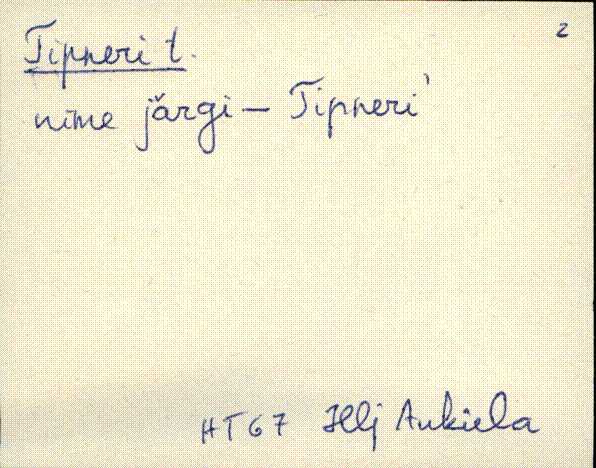 2
Tipneri t.
nime järgi – Tipneri'
HT67 Hlj Aukiela